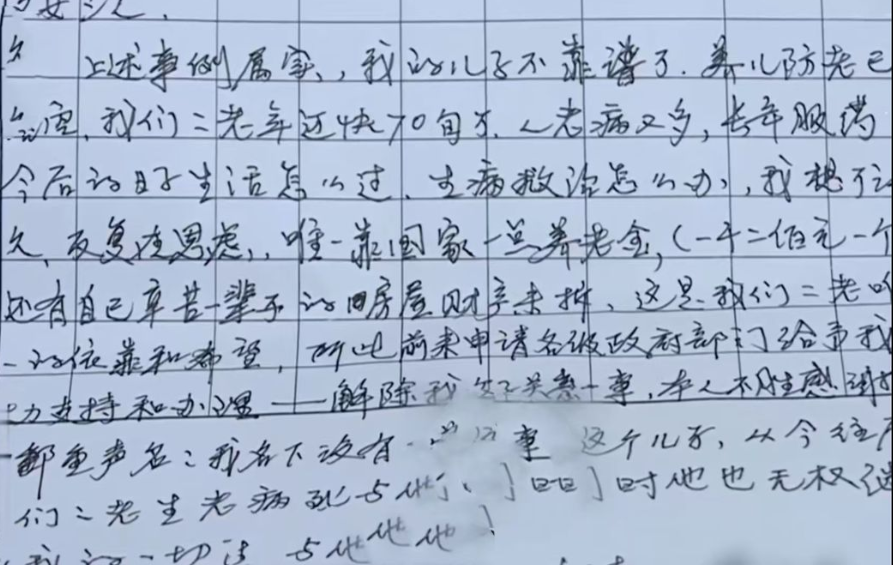 上述事例属实,我的儿子不靠谱了.养儿防老已
空,我们二老年近快70旬了.人老病又多,长年服药
今后的日子生活怎么过、生病救治怎么办,我想了
久,反复在思虑,唯一靠国家一点养老金,(一千二佰元一个
还有自己辛苦一辈子的旧房屋财产未拆、这是我们二老的
一的依靠和希望,所此前来申请各级政府部门给予我
力支持和办理——解除我父子关系一事.本人不胜感谢
郑重声名:我名下没有 这个儿子,从今往
们二老生老病死与他 同时他也无权
我的一切 与他